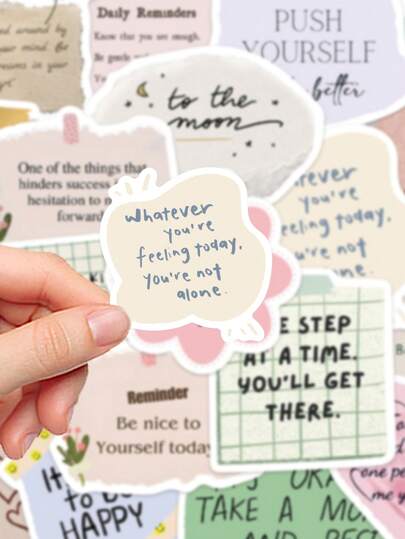 around by
your mind. Be
in your
Daily Reminders
Know that you are enough.
Be gentle
PUSH
YOURSELF
better
to the
moon
One of the things that
hinders success
hesitation to
forward
Whatever
you're
feeling today,
you're not
alone.
you're
today,
you're not
STEP
AT A TIME.
YOU'LL GET
THERE.
Reminder
Be nice to
Yourself today
to
HAPPY
TAKE A
one
me